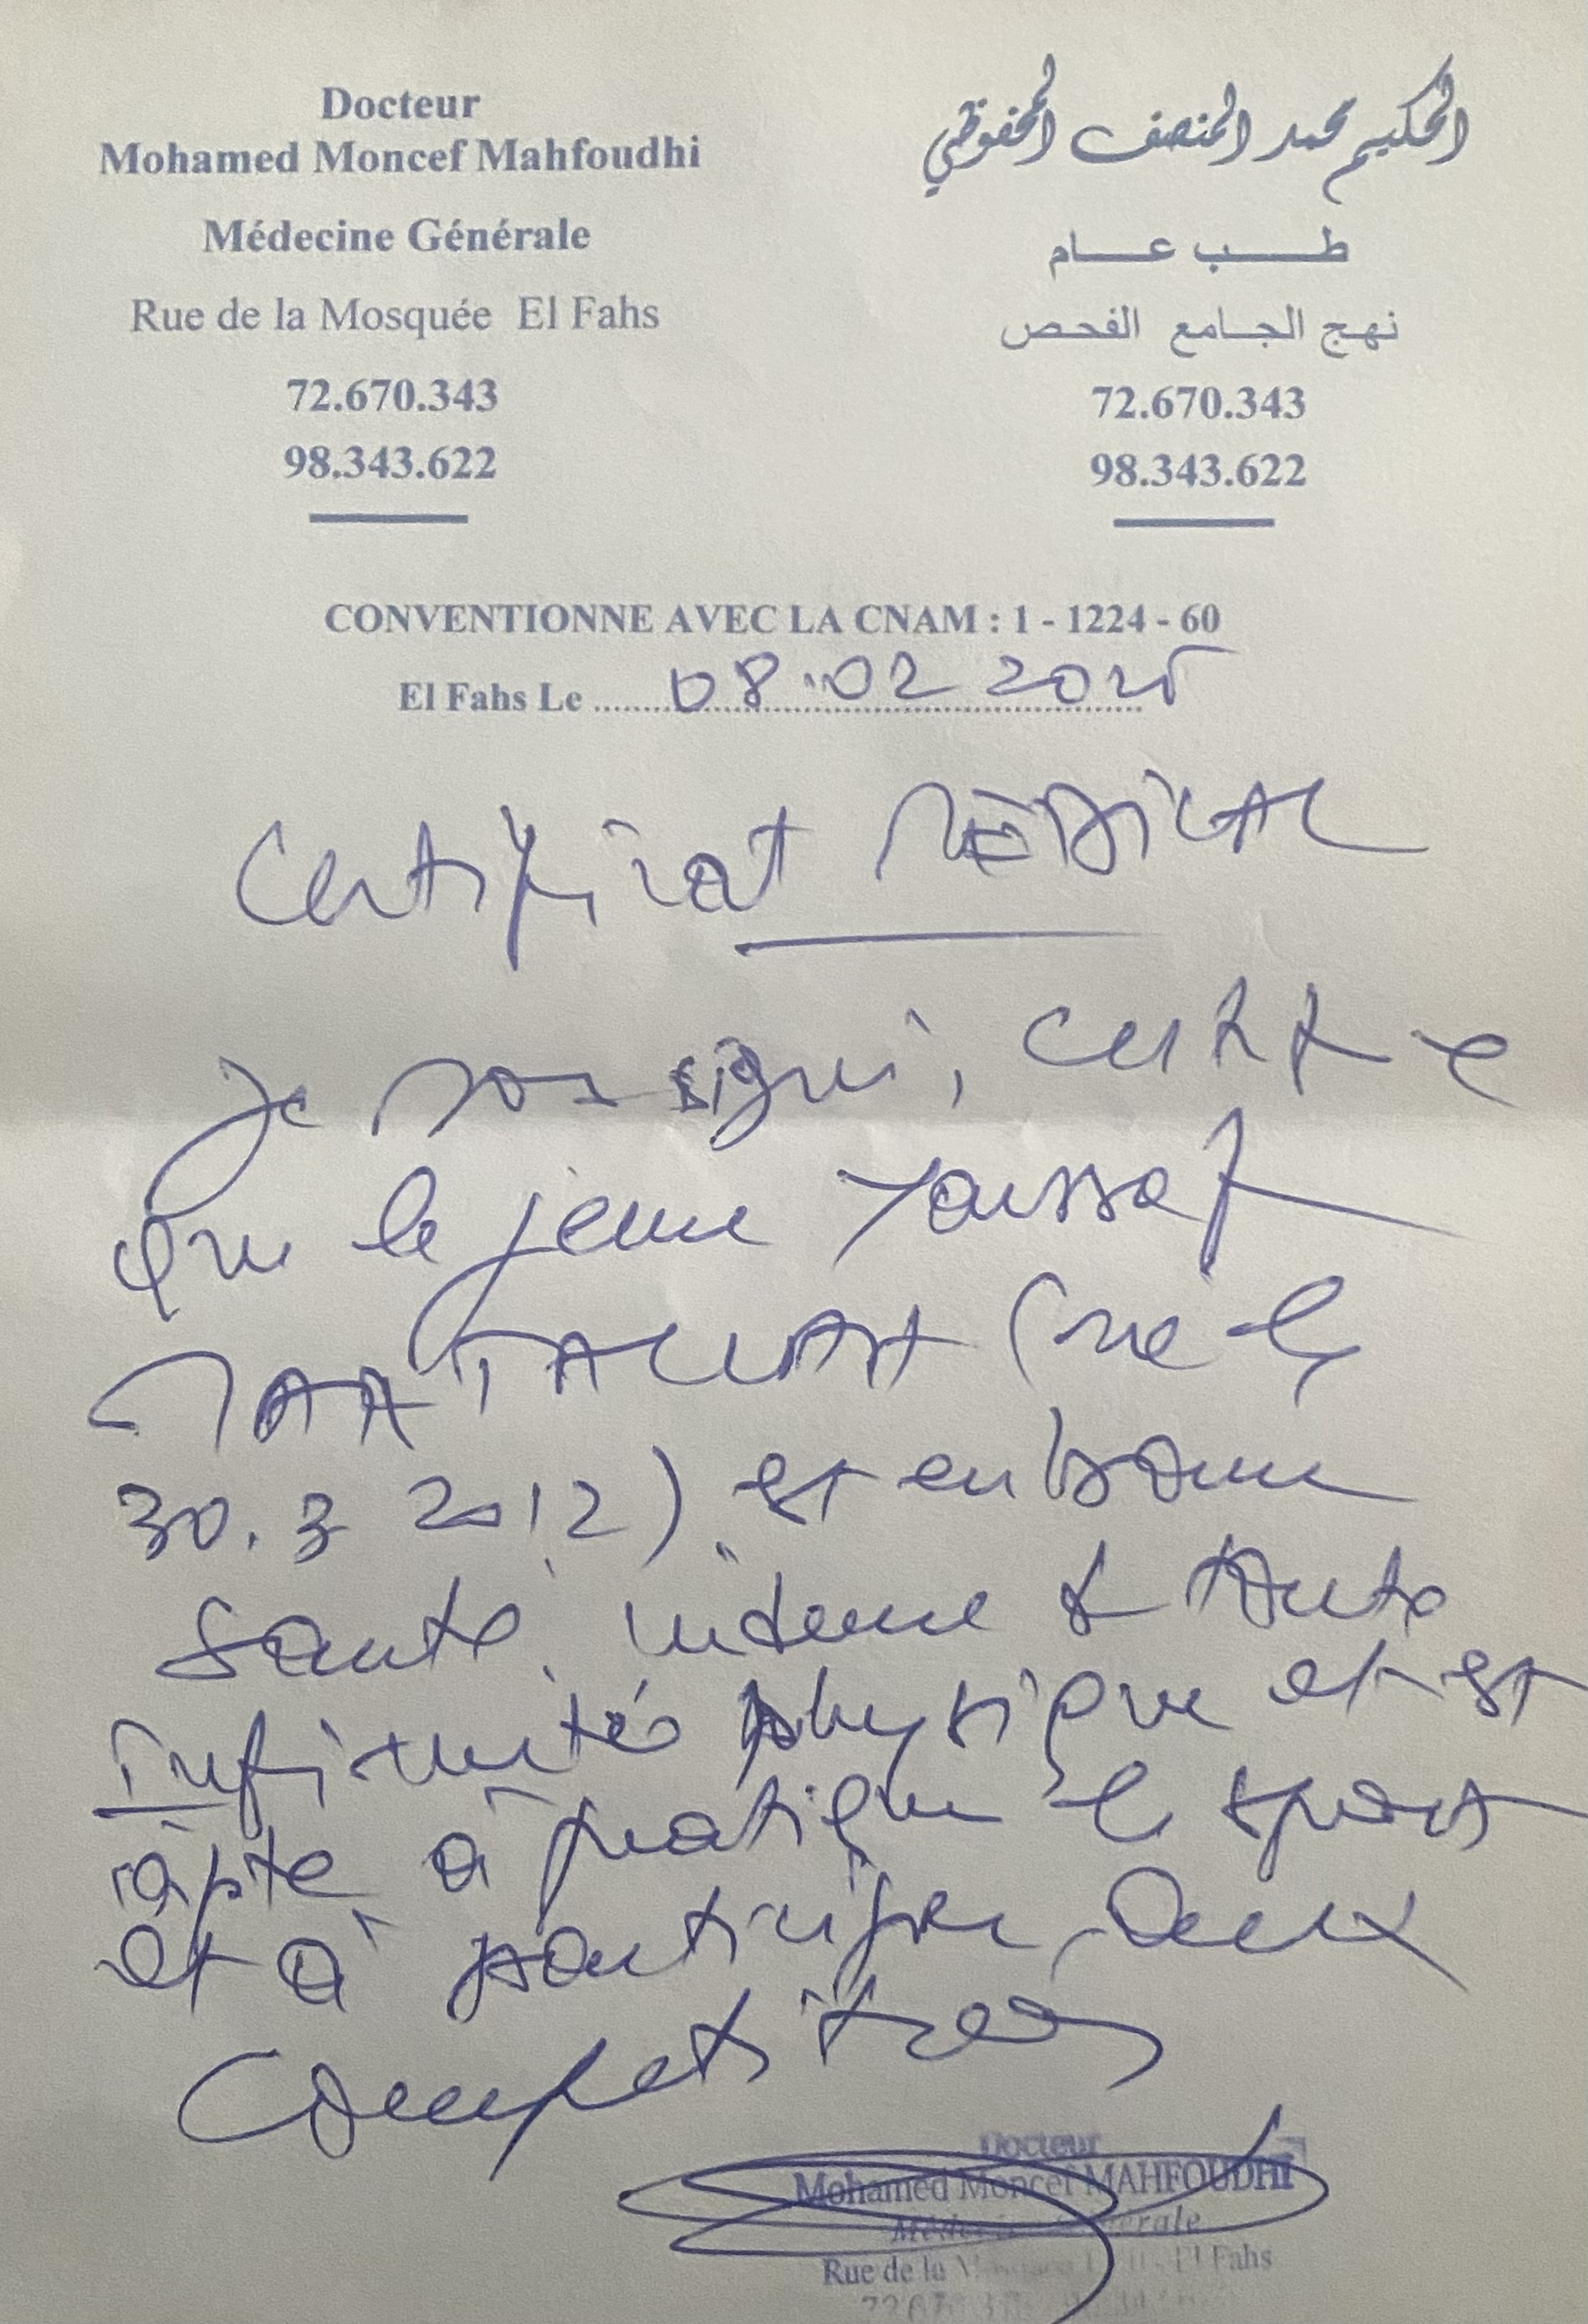 Docteur
Mohamed Moncef Mahfoudhi
Médecine Générale
Rue de la Mosquée El Fahs
72.670.343
98.343.622
الحكيم محمد المنصف المحفوظي
طب عام
نهج الجامع الفحص
72.670.343
98.343.622
CONVENTIONNE AVEC LA CNAM : 1 - 1224 - 60
El Fahs Le 08.02 2025
Certificat MÉDICAL
Je soussigné, certifie
que le jeune Youssef
(né le
30.3 2012) est en bonne
santé, indemne de toute
infirmité physique et est
apte à pratiquer le sport
et à participer aux
compétitions
Docteur
Mohamed Moncef MAHFOUDHI
Médecine Générale
Rue de la El Fahs